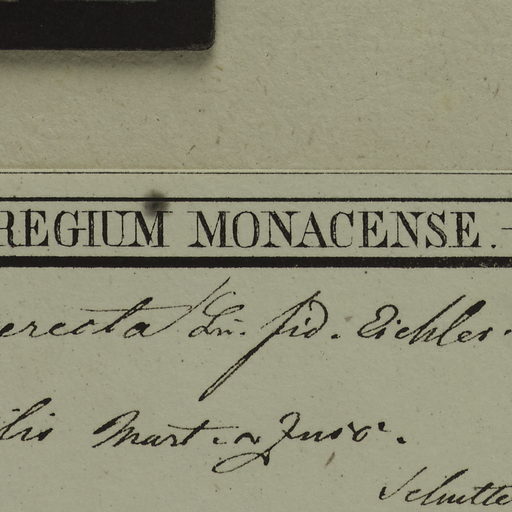 REGIUM MONACENSE. -
erecta Lin. fid. Eichler.
ilis Mart.
Schutte